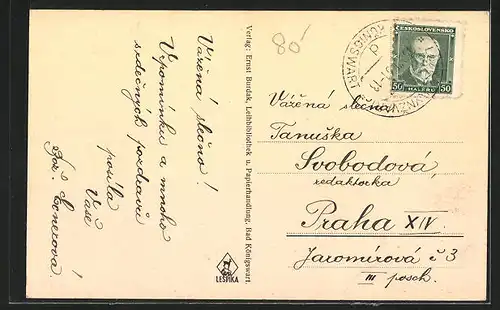 80
Vážená slečno!
Vzpomínku a mnoho
srdečných pozdravů
posílá
Vaše
Verlag: Ernst Burdak, Leihbibliothek u. Papierhandlung, Bad Königswart.
LEŠTKA
ČESKOSLOVENSKO
50 HALÉŘŮ 50
Vážená slečna
Tanuška
Svobodová,
redaktorka
Praha XIV.
Jaromírová č 3
III posch.